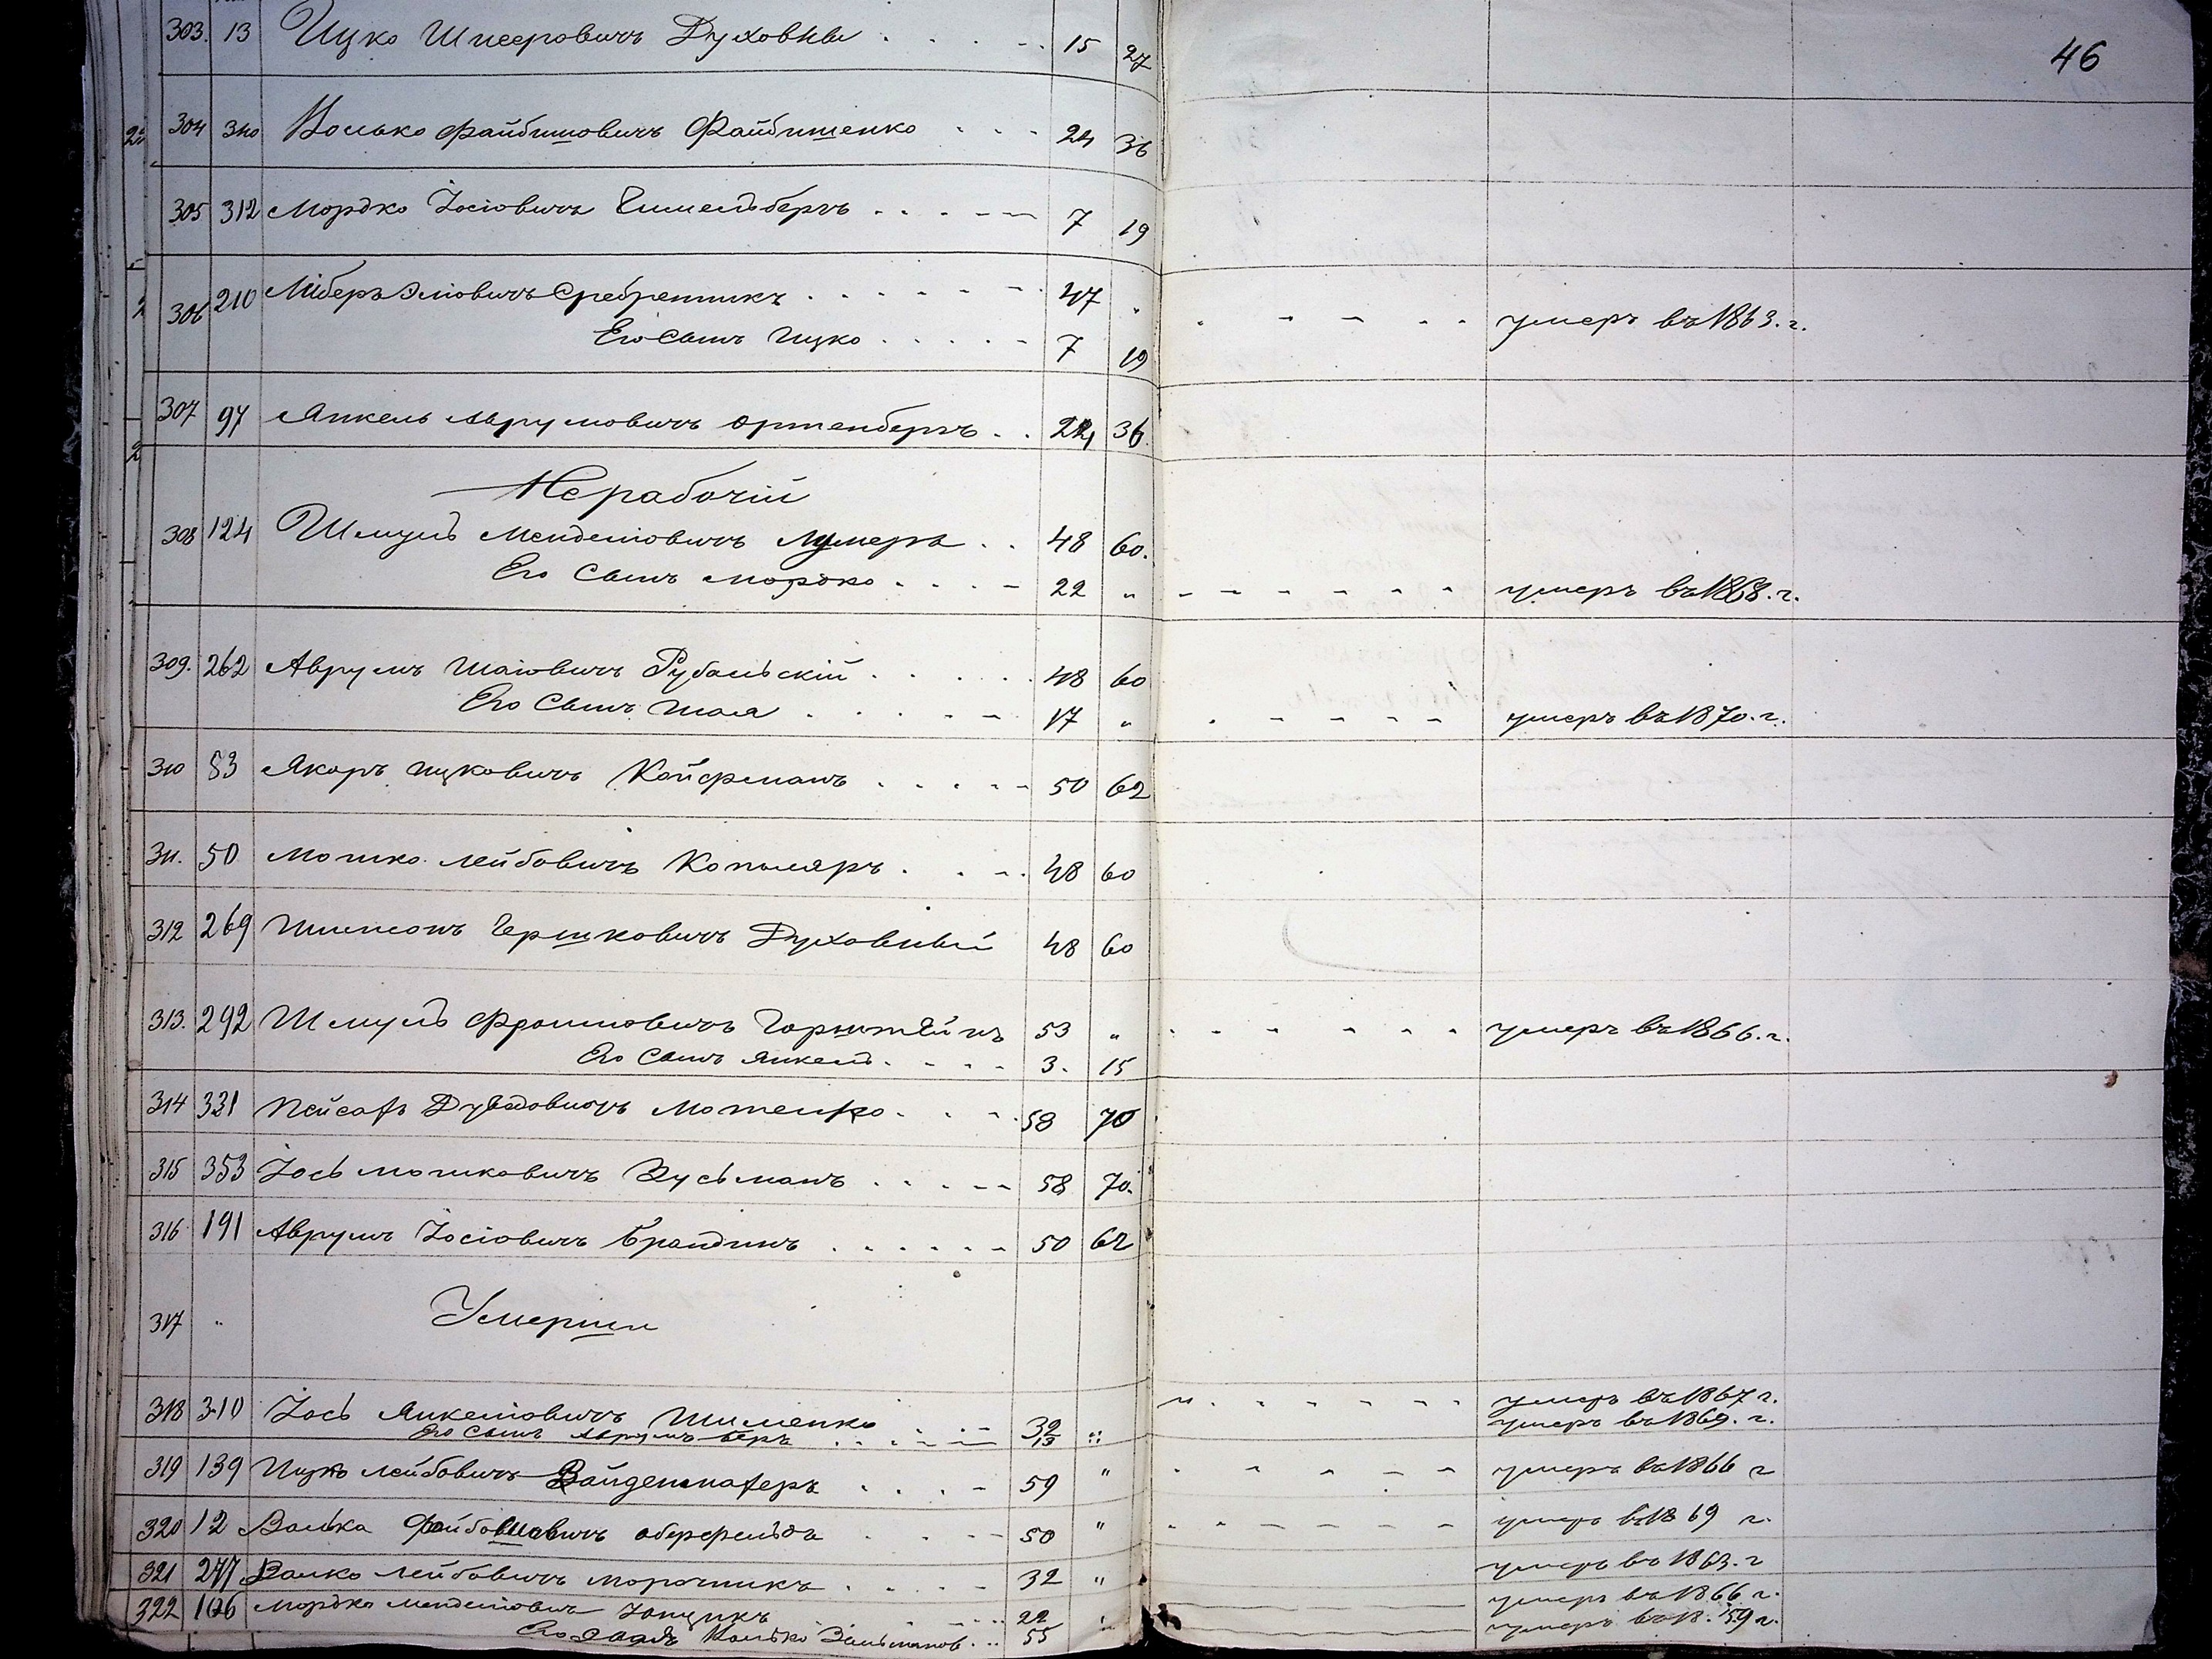 46
303. 13 Ицко Шнееровичъ Духовны 15 27
304 340 Волько Файбишовичъ Файбишенко 24 36
305 312 Мордко Іосіовичъ Гимельбергъ 7 19
306 210 Ліберъ Эліовичъ Сребренникъ 47 „ умеръ въ 1863. г.
Его Сынъ Ицко 7 19
307 97 Янкель Аврумовичъ Ортенбергъ 24 36.
Нерабочій
308 124 Шмуль Менделіовичъ 48 60.
Его Сынъ Мордко 22 „ умеръ въ 1868. г.
309. 262 Аврумъ Шаіовичъ Рубальскій 48 60
Его Сынъ Шая 17 „ умеръ въ 1870. г.
310 83 Якоръ Ицковичъ Койфманъ 50 62
311. 50 Мошко Лейбовичъ Копыляръ 48 60
312 269 Шимсонъ Гершковичъ Духовный 48 60
313. 292 Шмуль Фроимовичъ Горнштейнъ 53 „ умеръ въ 1866. г.
Его Сынъ Янкель 3. 15
314 331 Пейсахъ Дувидовичъ Мотенко 58 70
315 353 Іось Мошковичъ Зусьманъ 58 70.
316 191 Аврумъ Іосіовичъ Брандинъ 50 62
317 „ Умерши
318 310 Іось Янкеліовичъ Шименко 32 „ умеръ въ 1867 г.
Его Сынъ Аврумъ Беръ 13 „ умеръ въ 1869. г.
319 139 Ицко Лейбовичъ 59 „ умеръ въ 1866 г
320 12 Волька Файбовичъ оберфельдъ 50 „ умеръ въ 1869 г.
321 277 Волко Лейбовичъ Морочникъ 32 „ умеръ въ 1863. г
322 106 Мордко Менделіовичъ 22 умеръ въ 1866 г.
Его Колько Зельманов. 55 „ умеръ въ 18.59 г.